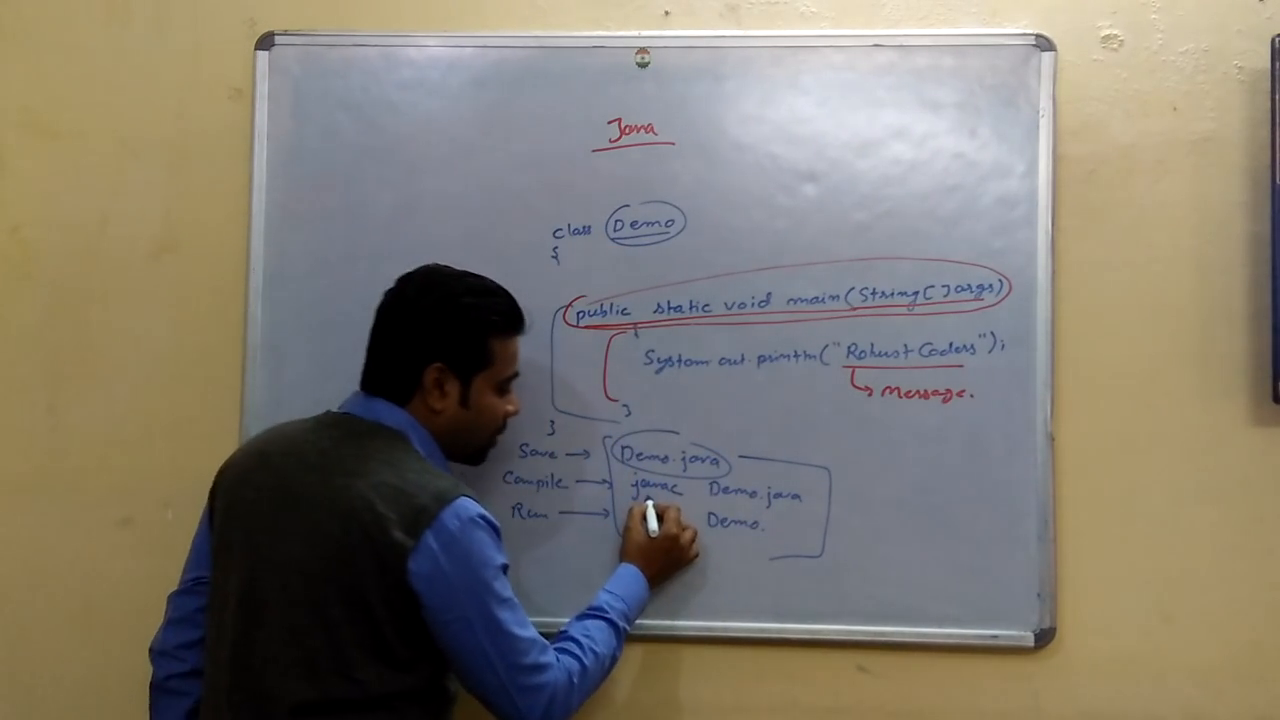 Java
class Demo
{
public static void main(String[]args)
{
System.out.println("Robust Coders");
Message.
}
}
Save → Demo.java
Compile → javac Demo.java
Run → Demo.